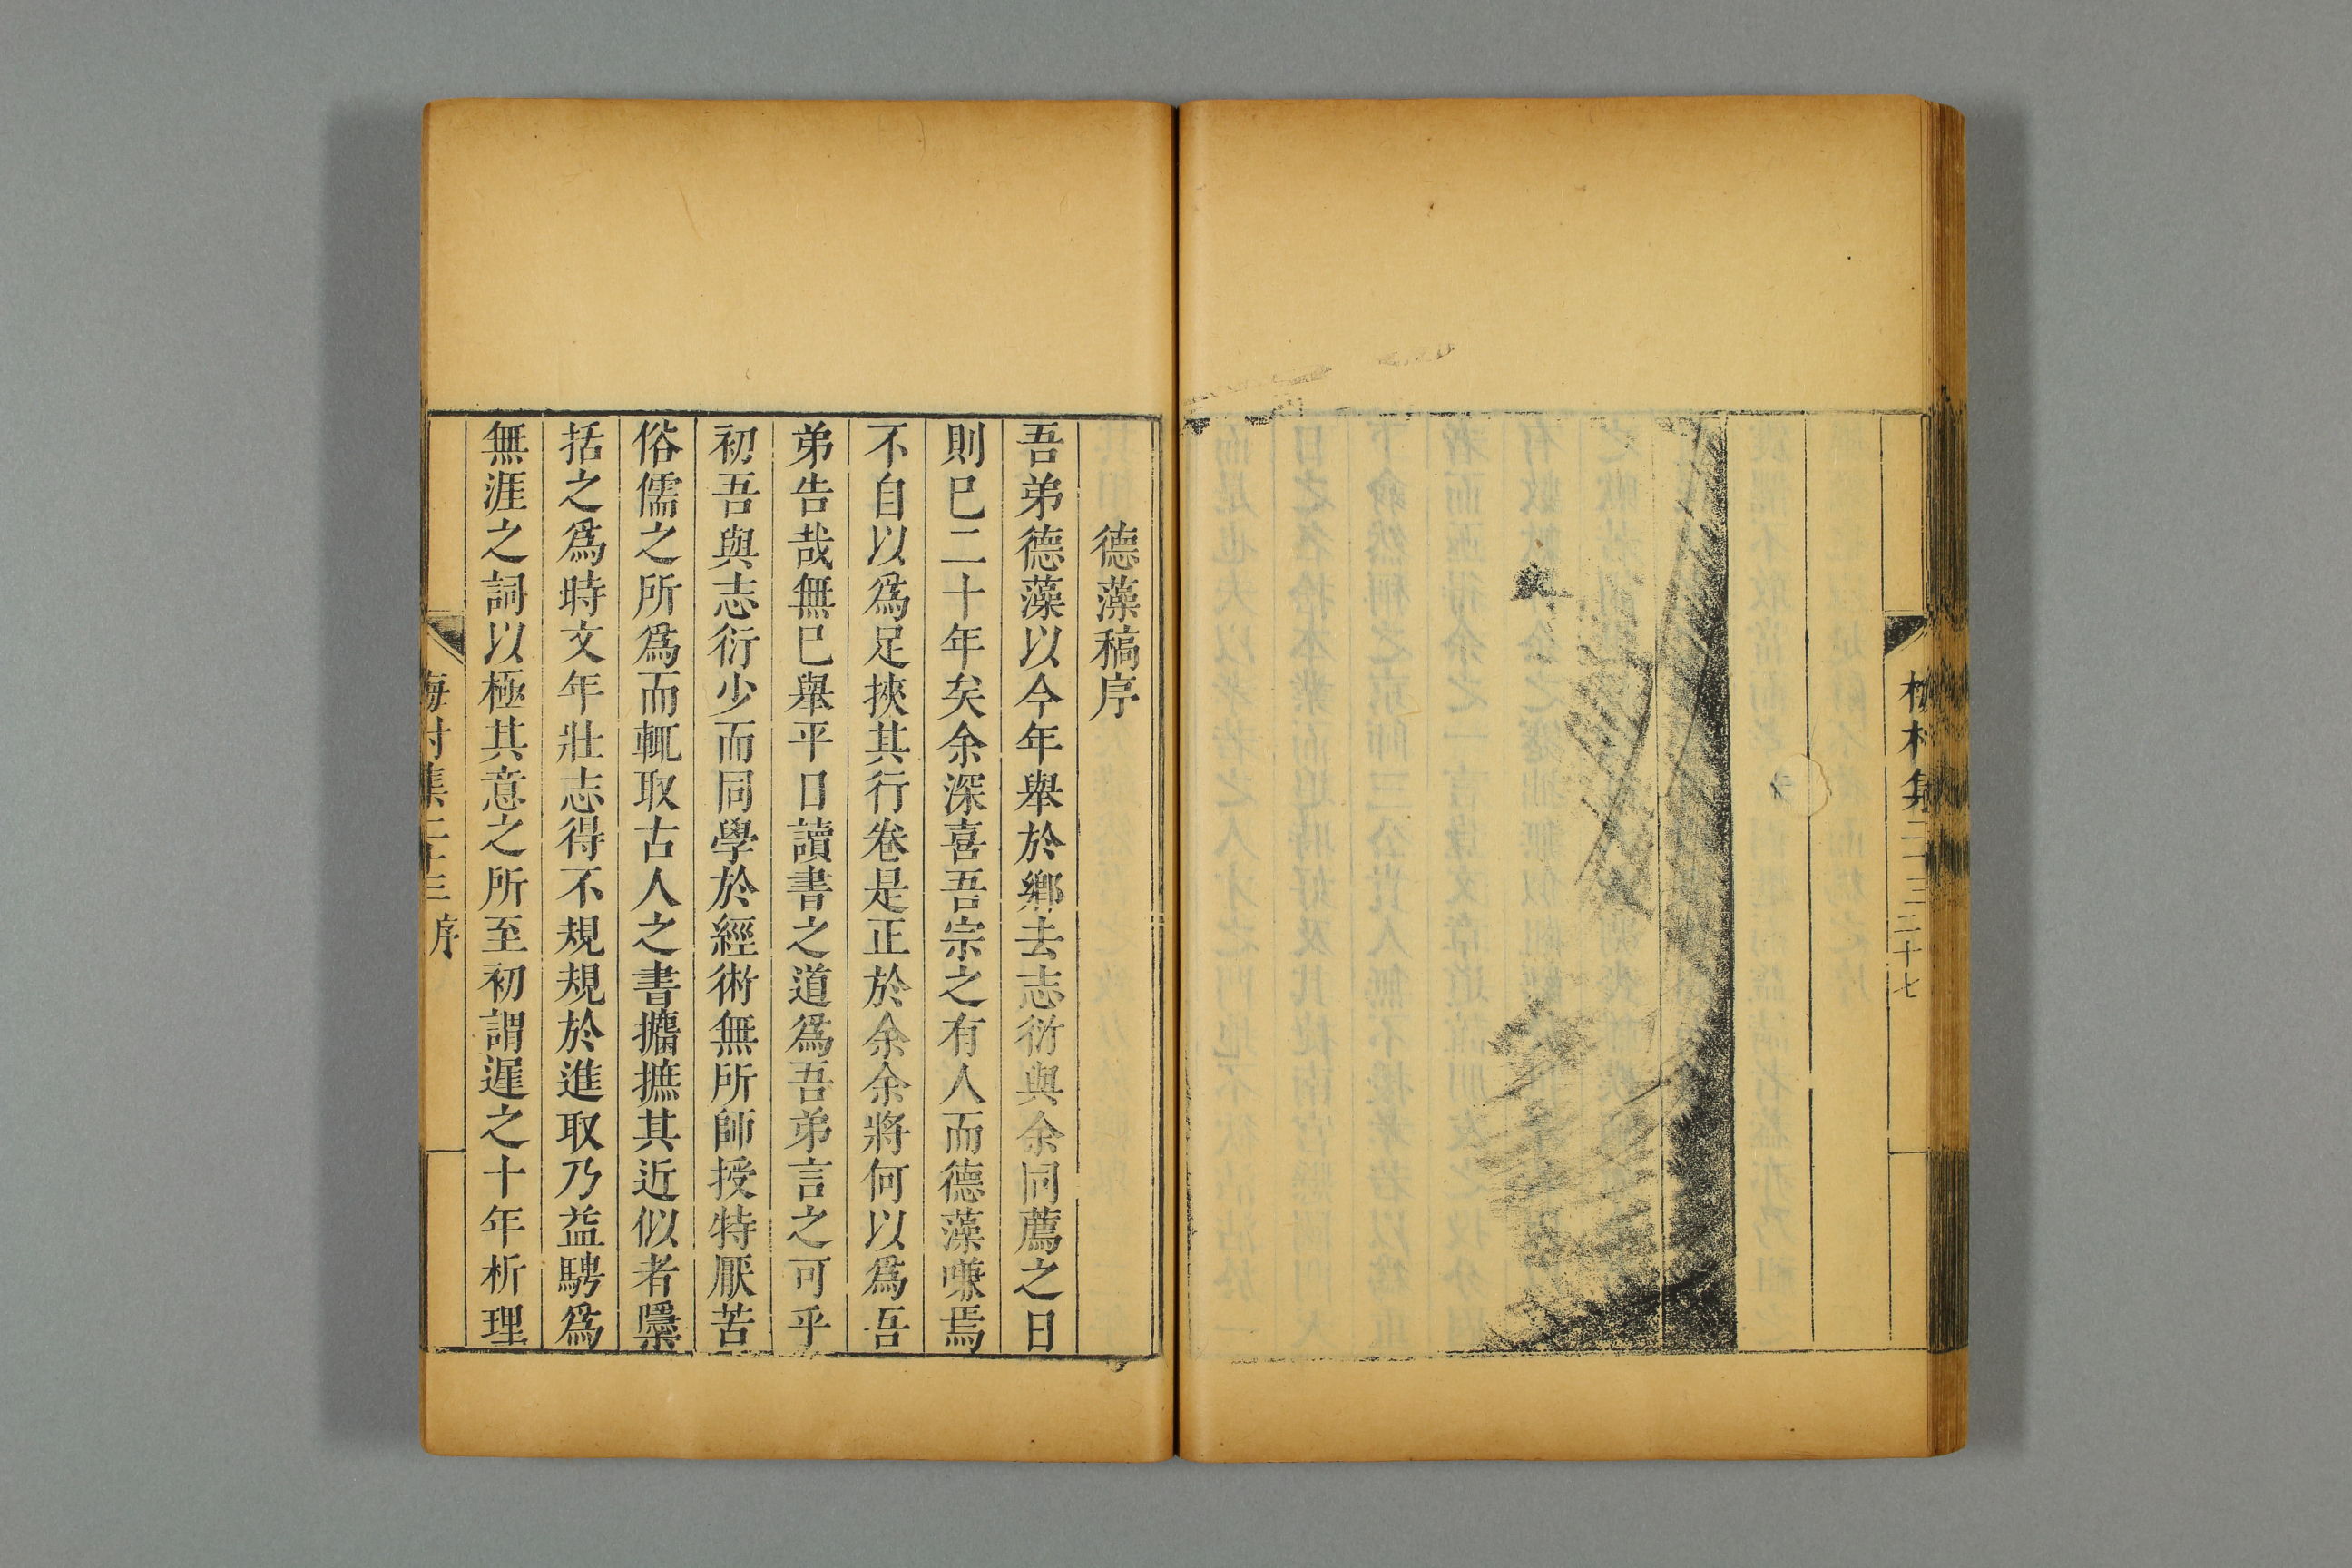 梅村集 二十三 二十七
德藻稿序
吾弟德藻以今年舉於鄉去志衍與余同薦之日
則已二十年矣余深喜吾宗之有人而德藻嗛焉
不自以爲足挾其行卷是正於余余將何以爲吾
弟告哉無已舉平日讀書之道爲吾弟言之可乎
初吾與志衍少而同學於經術無所師授特厭苦
俗儒之所爲而輒取古人之書攟摭其近似者隱
括之爲時文年壯志得不規規於進取乃益騁爲
無涯之詞以極其意之所至初謂遲之十年析理
梅村集二十三 序